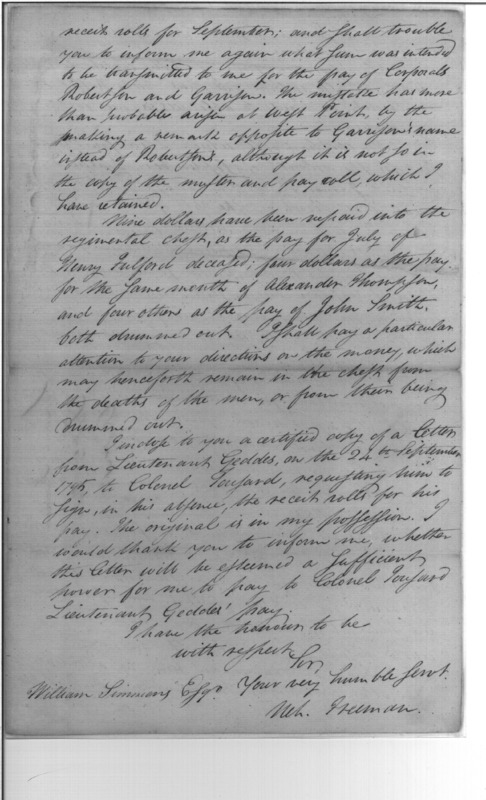 receit rolls for September; and shall trouble
you to inform me again what sum was intended
to be transmitted to me for the pay of Corporals
Robertson and Garrison. The mistake has more
than probable arisen at West Point, by the
making a remark opposite to Garrison's name
instead of Robertson's, although it is not so in
the copy of the muster and pay roll, which I
have retained.
Nine dollars have been repaid into the
regimental chest, as the pay for July of
Henry Fulford deceased; four dollars as the pay
for the same month of Alexander Thompson,
and four others as the pay of John Smith,
both drummed out. I shall pay a particular
attention to your directions on the money, which
may henceforth remain in the chest from
the deaths of the men, or from their being
drummed out.
I inclose to you a certified copy of a letter
from Lieutenant Geddes, on the September
1795, to Colonel Tousard, requesting him to
sign, in his absence, the receit rolls for his
pay. The original is in my possession. I
would thank you to inform me, whether
this letter will be esteemed a sufficient
power for me to pay to Colonel Tousard
Lieutenant Geddes' pay.
I have the honour to be
with respect
Sir,
William Simmons Esqr. Your very humble Servt.
Neh. Freeman.